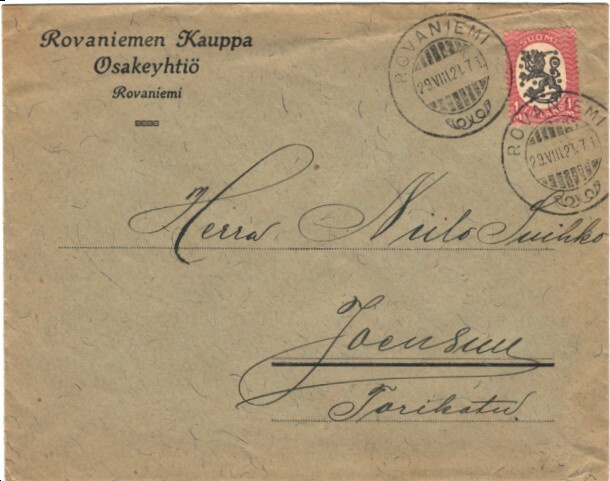 Rovaniemen Kauppa
Osakeyhtiö
Rovaniemi
ROVANIEMI
29.VIII.21.7
SUOMI
1 1
ROVANIEMI
29.VIII.21.7
Herra Niilo Suihko
Joensuu
Torikatu.